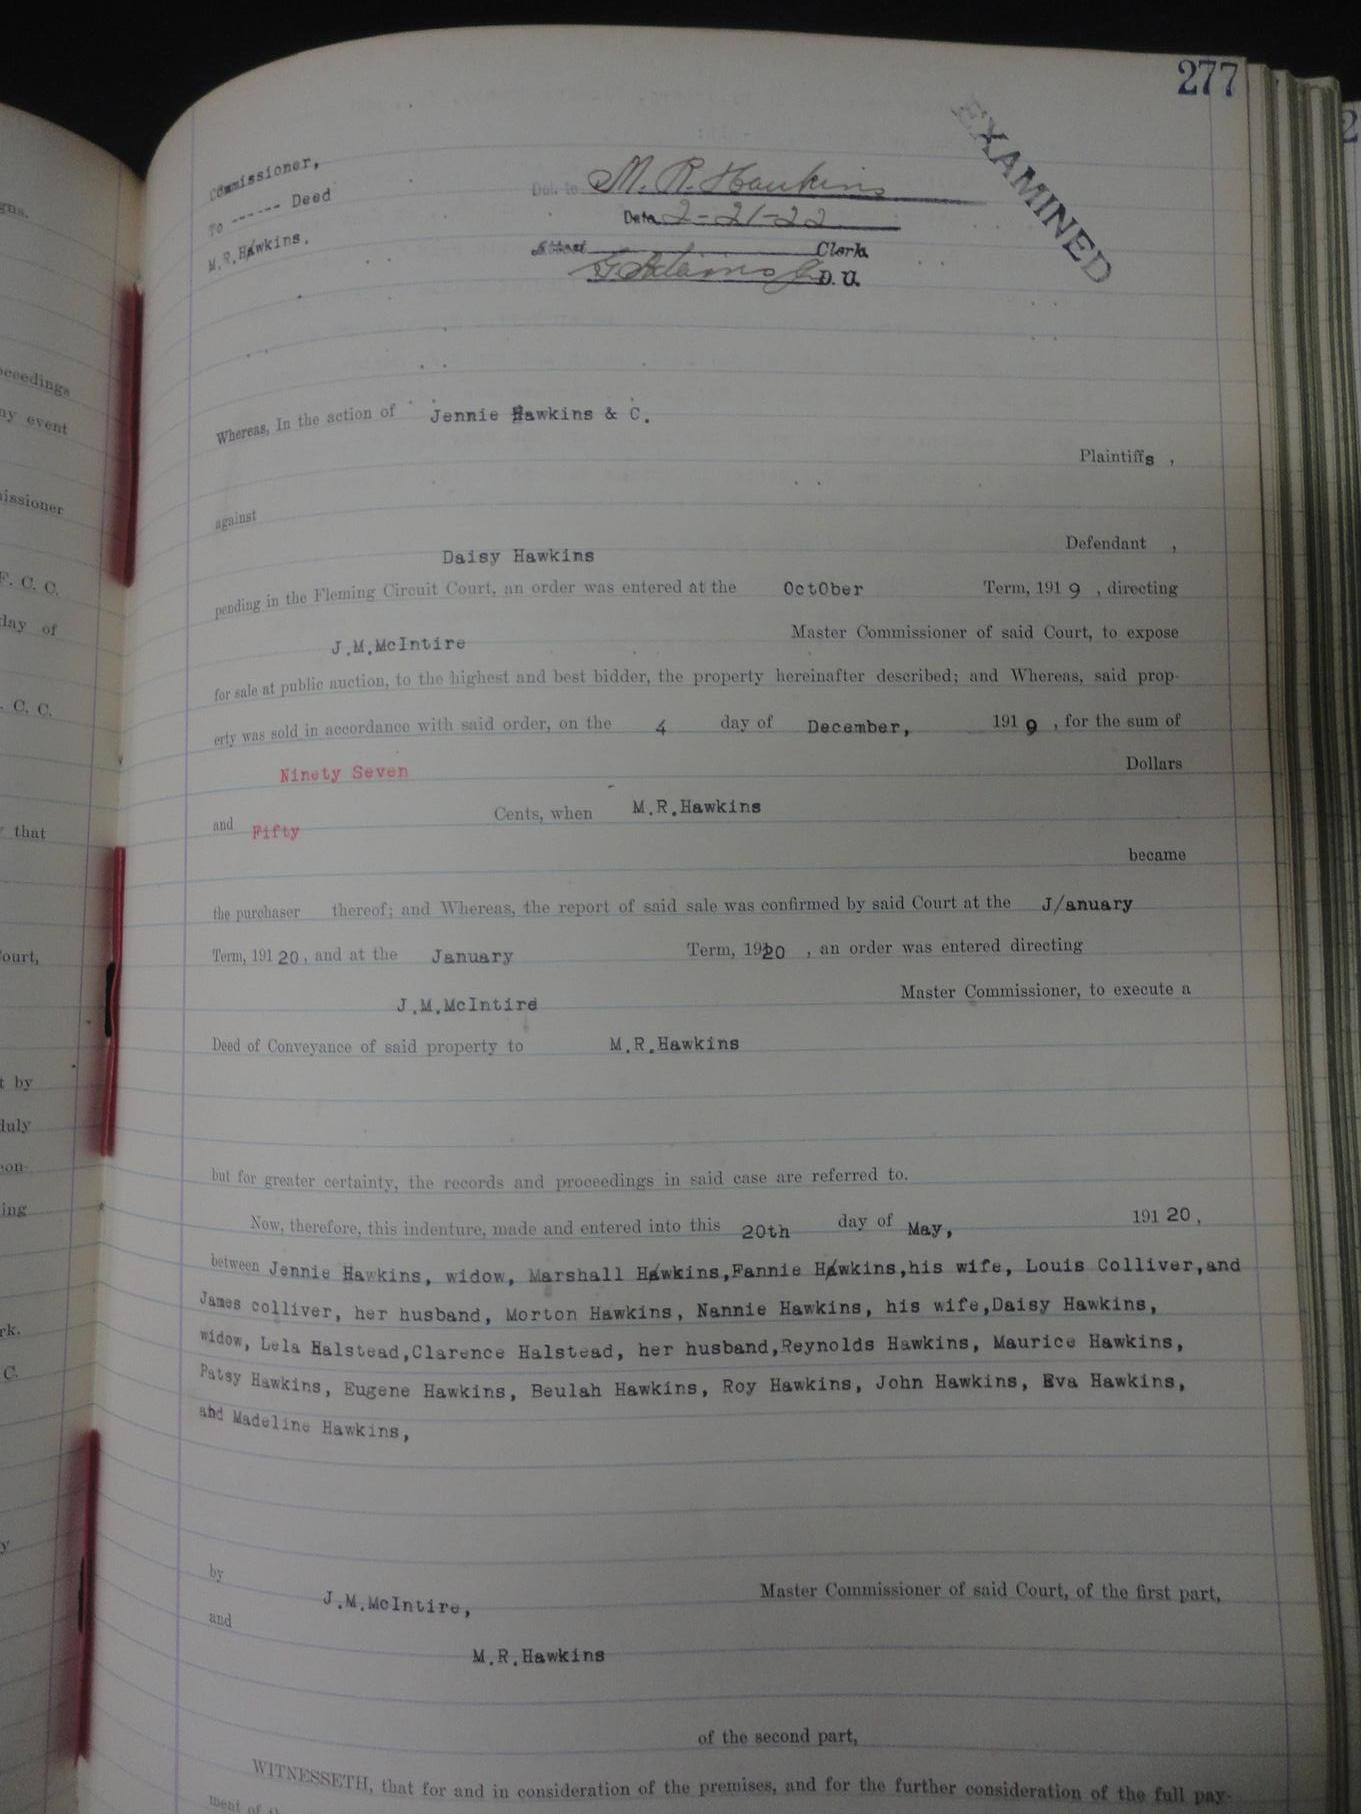 277
EXAMINED
Commissioner,
To ------ Deed
M.R.Hawkins.
Del. to M. R. Hawkins
Date 2-21-22
Attest Clerk
G Adams D. C.
Whereas, In the action of Jennie Hawkins & C.
Plaintiffs ,
against
Daisy Hawkins Defendant ,
pending in the Fleming Circuit Court, an order was entered at the OctOber Term, 191 9 , directing
J.M.McIntire Master Commissioner of said Court, to expose
for sale at public auction, to the highest and best bidder, the property hereinafter described; and Whereas, said prop-
erty was sold in accordance with said order, on the 4 day of December, 191 9 , for the sum of
Ninety Seven Dollars
and Fifty Cents, when M.R.Hawkins
became
the purchaser thereof; and Whereas, the report of said sale was confirmed by said Court at the J/anuary
Term, 191 20 , and at the January Term, 1920 , an order was entered directing
J.M.McIntire Master Commissioner, to execute a
Deed of Conveyance of said property to M.R.Hawkins
but for greater certainty, the records and proceedings in said case are referred to.
Now, therefore, this indenture, made and entered into this 20th day of May, 191 20 ,
between Jennie Hawkins, widow, Marshall Hawkins,Fannie Hawkins,his wife, Louis Colliver,and
James colliver, her husband, Morton Hawkins, Nannie Hawkins, his wife,Daisy Hawkins,
widow, Lela Halstead,Clarence Halstead, her husband,Reynolds Hawkins, Maurice Hawkins,
Patsy Hawkins, Eugene Hawkins, Beulah Hawkins, Roy Hawkins, John Hawkins, Eva Hawkins,
and Madeline Hawkins,
by J.M.McIntire, Master Commissioner of said Court, of the first part,
and
M.R.Hawkins
of the second part,
WITNESSETH, that for and in consideration of the premises, and for the further consideration of the full pay-
ment of